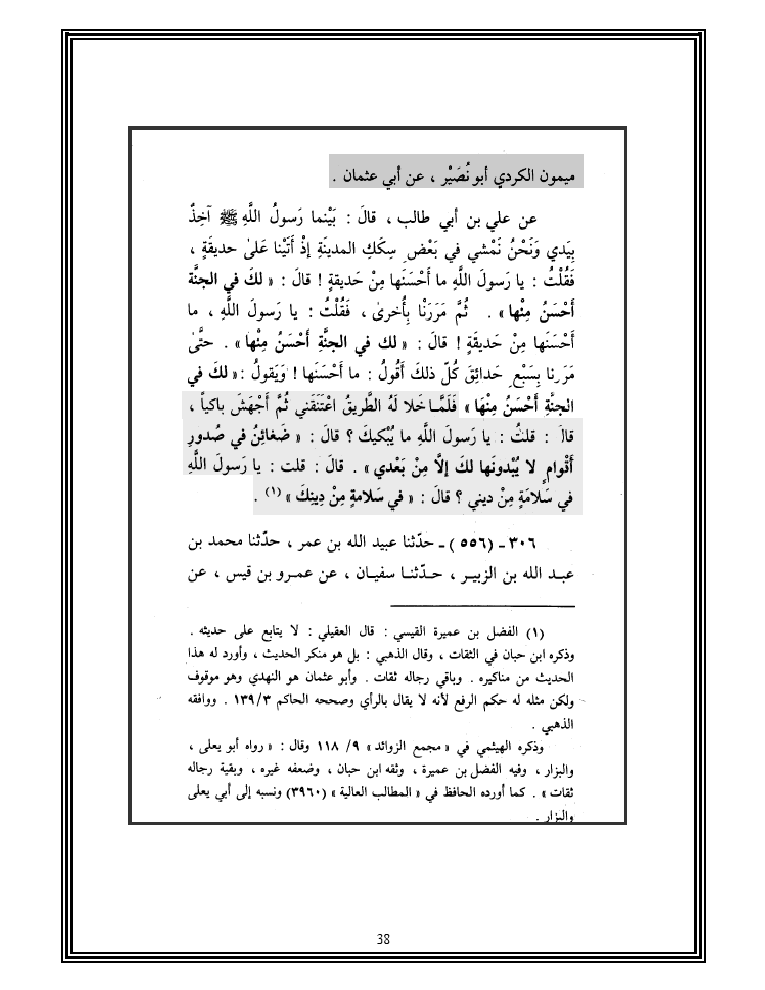 ميمون الكردي أبو نُصَيْر ، عن أبي عثمان .
عن علي بن أبي طالب ، قالَ : بَيْنما رَسولُ اللَّهِ ﷺ آخِذٌ
بِيَدي وَنَحْنُ نَمْشي في بَعْضِ سِكَكِ المدينَةِ إذْ أَتَيْنا عَلىٰ حديقَةٍ ،
فَقُلْتُ : يا رَسولَ اللَّهِ ما أَحْسَنَها مِنْ حَديقةٍ ! قالَ : « لكَ في الجنَّة
أَحْسَنُ مِنْها » . ثُمَّ مَرَرْنا بِأُخرىٰ ، فَقُلْتُ : يا رَسولَ اللَّهِ ، ما
أَحْسَنَها مِنْ حَديقَةٍ ! قالَ : « لك في الجنَّةِ أَحْسَنُ مِنْها » . حتَّىٰ
مَرَرنا بِسَبْعِ حدائقَ كُلّ ذلكَ أَقُولُ : ما أَحْسَنَها ! وَيَقولُ : « لكَ في
الجنَّةِ أَحْسَنُ مِنْها » فَلَمَّا خلا لَهُ الطَّريقُ اعْتَنَقَني ثُمَّ أَجْهَشَ باكياً ،
قالَ : قلتُ : يا رَسولَ اللَّهِ ما يُبْكيكَ ؟ قالَ : « ضَغائنُ في صُدورِ
أَقْوامٍ لا يُبْدونَها لكَ إلَّا مِنْ بَعْدي » . قالَ : قلت : يا رَسولَ اللَّهِ
في سَلامَةٍ مِنْ ديني ؟ قالَ : « في سَلامةٍ مِنْ دِينِكَ » (١) .
٣٠٦ - (٥٥٦) - حدّثنا عبيد الله بن عمر ، حدّثنا محمد بن
عبد الله بن الزبير ، حدّثنا سفيان ، عن عمرو بن قيس ، عن
(١) الفضل بن عميرة القيسي : قال العقيلي : لا يتابع على حديثه .
وذكره ابن حبان في الثقات ، وقال الذهبي : بل هو منكر الحديث ، وأورد له هذا
الحديث من مناكيره . وباقي رجاله ثقات . وأبو عثمان هو النهدي وهو موقوف
ولكن مثله له حكم الرفع لأنه لا يقال بالرأي وصححه الحاكم ١٣٩/٣ . ووافقه
الذهبي .
وذكره الهيثمي في « مجمع الزوائد » ٩/ ١١٨ وقال : « رواه أبو يعلى ،
والبزار ، وفيه الفضل بن عميرة ، وثقه ابن حبان ، وضعفه غيره ، وبقية رجاله
ثقات » . كما أورده الحافظ في « المطالب العالية » (٣٩٦٠) ونسبه إلى أبي يعلى
والبزار .
38